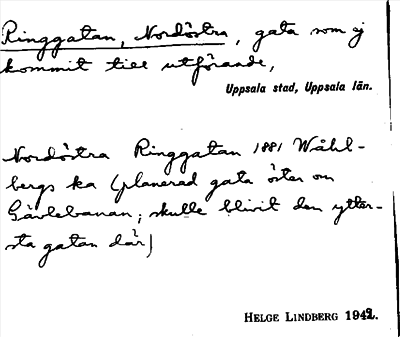 Ringgatan, Nordöstra, gata som ej
kommit till utförande,
Uppsala stad, Uppsala län.
Nordöstra Ringgatan 1881 Wåhl-
bergs ka (planerad gata öster om
Gävlebanan; skulle blivit den ytter-
sta gatan där)
HELGE LINDBERG 1942.